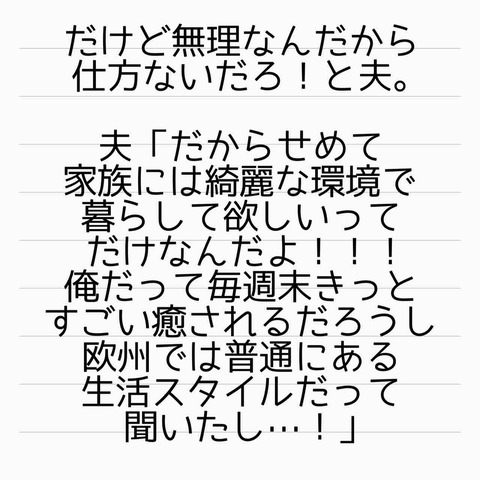 だけど無理なんだから
仕方ないだろ！と夫。
夫「だからせめて
家族には綺麗な環境で
暮らして欲しいって
だけなんだよ！！！
俺だって毎週末きっと
すごい癒されるだろうし
欧州では普通にある
生活スタイルだって
聞いたし…！」